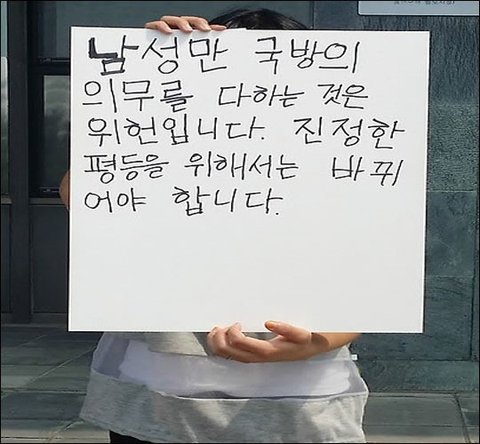 남성만 국방의
의무를 다하는 것은
위헌입니다. 진정한
평등을 위해서는 바꿔
어야 합니다.